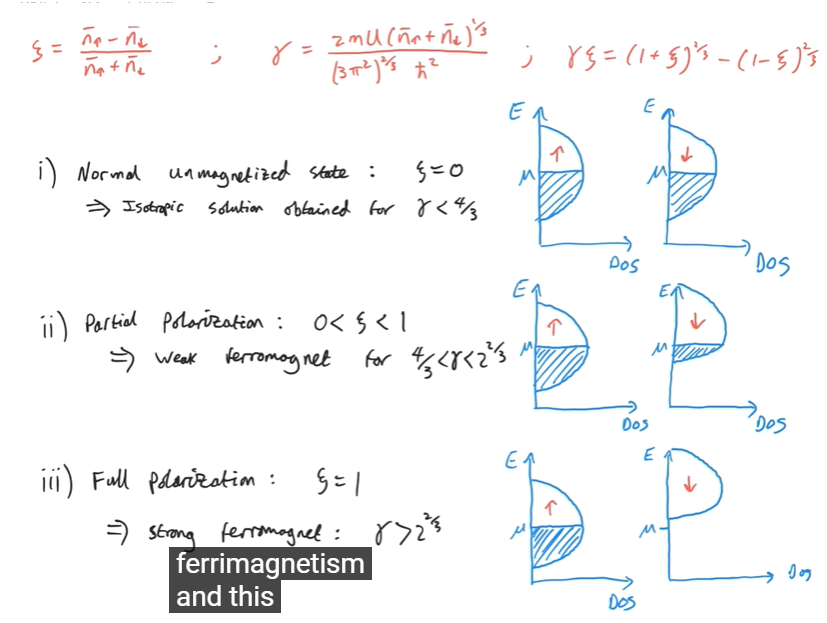 ξ = (n̄↑ − n̄↓)/(n̄↑ + n̄↓) ; γ = 2mU(n̄↑ + n̄↓)^(1/3) / ((3π²)^(2/3) ħ²) ; γξ = (1+ξ)^(2/3) − (1−ξ)^(2/3)
i) Normal unmagnetized state : ξ=0
⇒ Isotropic solution obtained for γ < 4/3
E
↑
μ
DOS
E
↓
μ
DOS
ii) Partial Polarization : 0 < ξ < 1
⇒ weak ferromagnet for 4/3 < γ < 2^(2/3)
E
↑
μ
DOS
E
↓
μ
DOS
iii) Full polarization : ξ = 1
⇒ strong ferromagnet : γ > 2^(2/3)
E
↑
μ
DOS
E
↓
μ
DOS
ferrimagnetism
and this